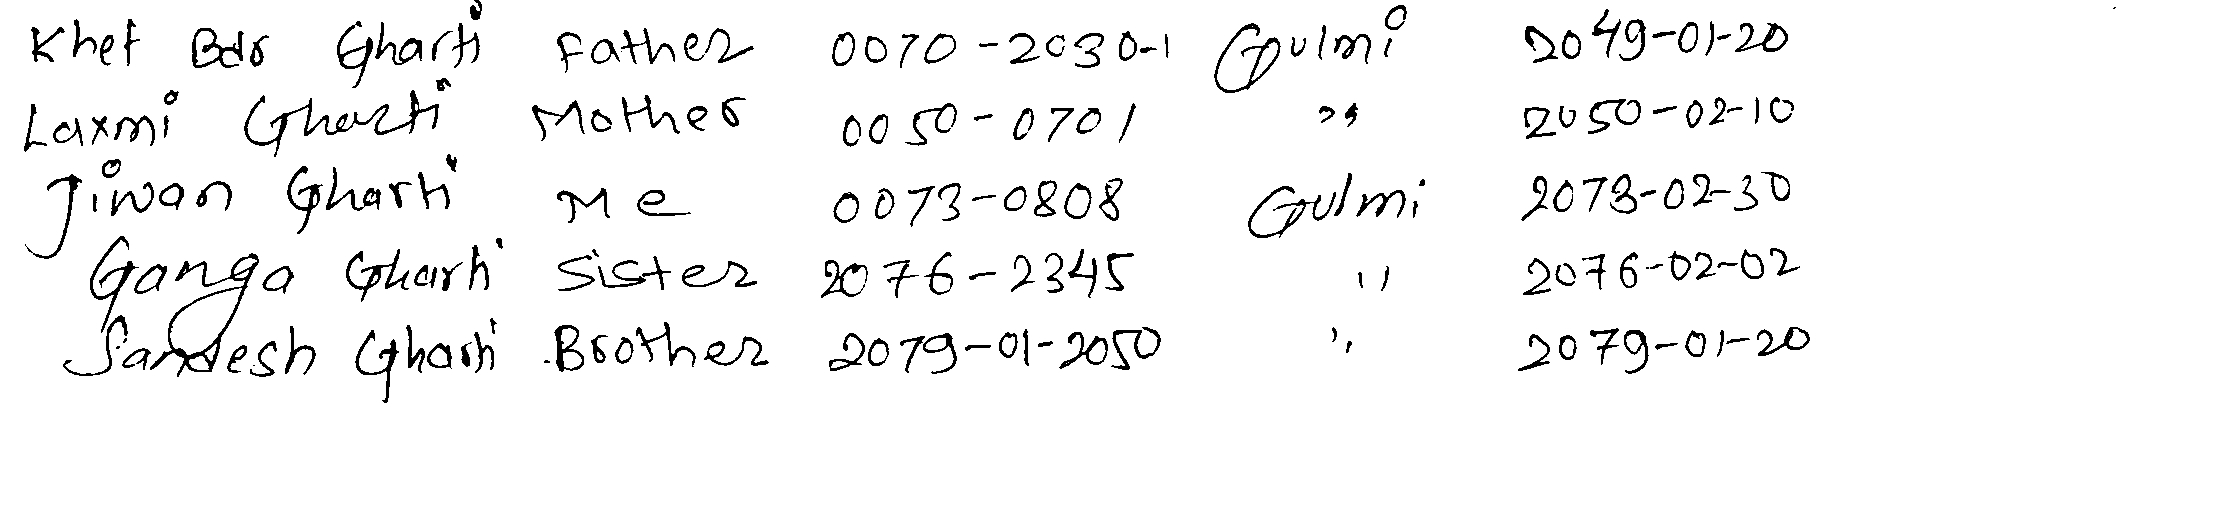 Khet Bdr Gharti Father 0070-2030-1 Gulmi 2049-01-20
Laxmi Gharti Mother 0050-0701 " 2050-02-10
Jiwan Gharti Me 0073-0808 Gulmi 2073-02-30
Ganga Gharti Sister 2076-2345 " 2076-02-02
Sandesh Gharti Brother 2079-01-2050 " 2079-01-20